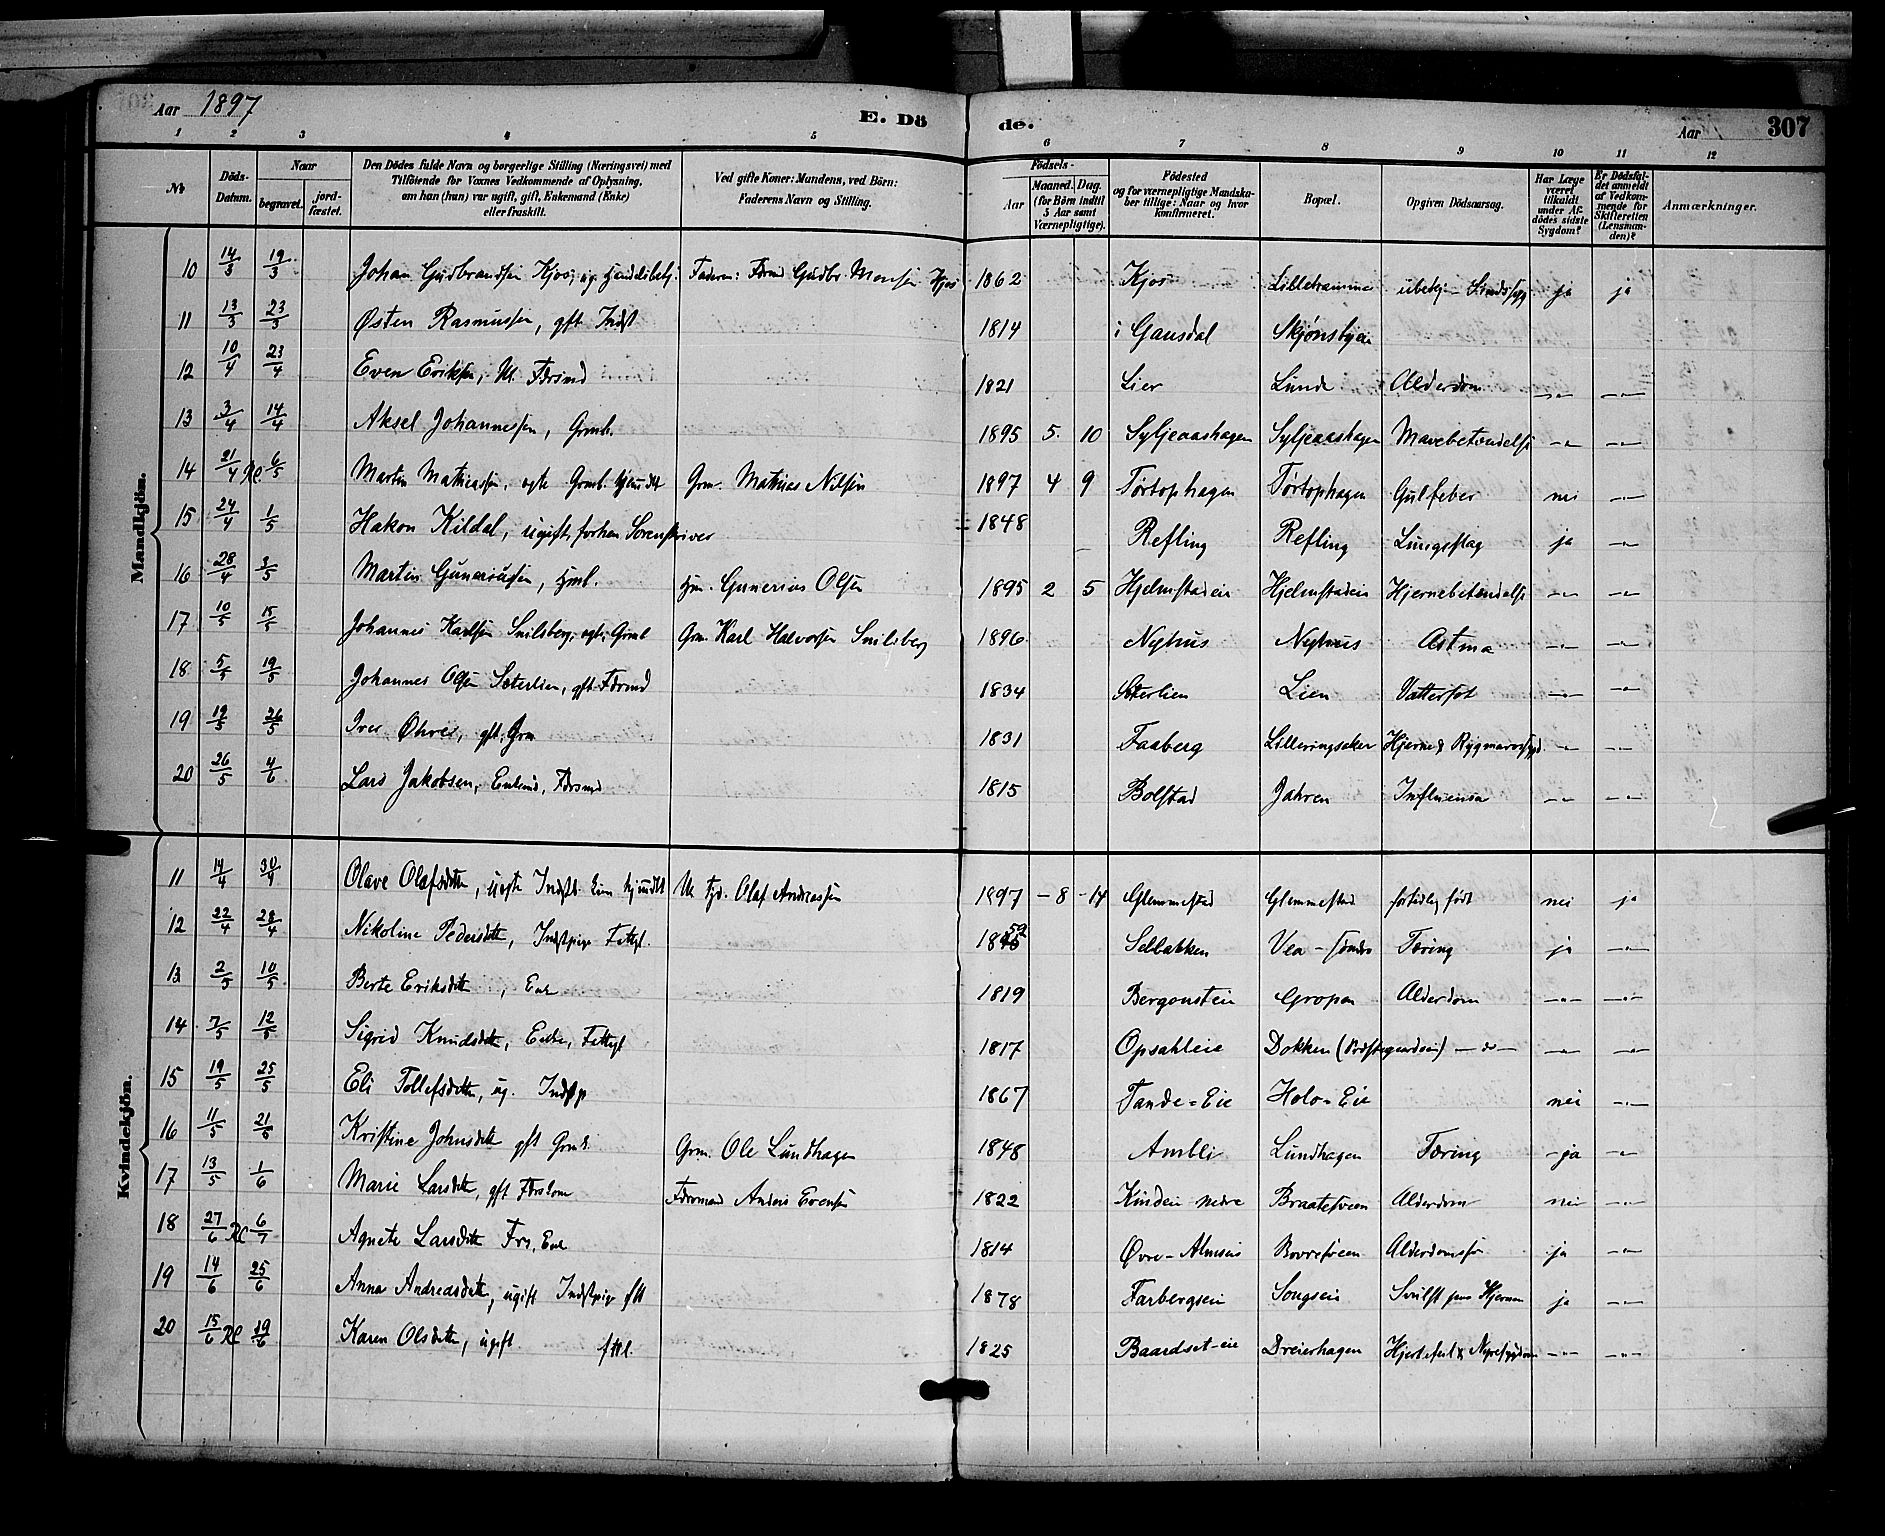 Aar 1897
E. Dö
de.
Aar
307
1 2 3 4 5 6 7 8 9 10 11 12
No
Döds-Datum.
Naar
begravet.
jord-fæstet.
Den Dödes fulde Navn og borgerlige Stilling (Næringsvei) med
Tilföiende for Voxnes Vedkommende af Oplysning,
om han (hun) var ugift, gift, Enkemand (Enke)
eller fraskilt.
Ved gifte Koner: Mandens, ved Börn:
Faderens Navn og Stilling.
Födsels-
Aar
Maaned.
Dag.
(for Börn indtil
5 Aar samt
Værnepligtige).
Födested
og for værnepligtige Mandska-
ber tillige: Naar og hvor
konfirmeret.
Bopæl.
Opgiven Dödsaarsag.
Har Læge
været
tilkaldt
under Af-
dödes sidste
Sygdom?
Er Dödsfal-
det anmeldt
af Vedkom-
mende for
Skifteretten
(Lensman-
den)?
Anmærkninger.
Mandkjön.
10 14/3 19/3 Johan Gudbrandsen Kjos, ug. Faderen: Gudbr. Monsen Kjos 1862 Kjos Lillehramme ubekj. ja ja
11 13/3 23/3 Østen Rasmussen, gft Indst 1814 i Gausdal
12 10/4 23/4 Even Eriksen, 1821 Lier Lunde Alderdom —"— —"—
13 3/4 14/4 Aksel Johannessen, Grmb. 1895 5. 10 Syljeaashagen Syljeaashagen Mavebetændelse —"— —"—
14 21/4 6/5 Martin Mathiassen, ægte Grmb. hjemdbt Grm. Mathias Nilsen 1897 4 9 Tørtophagen Tørtophagen Gulfeber nei —"—
15 24/4 1/5 Hakon Kildal, ugift, forhen Sorenskriver 1848 Refling Refling Lungeslag ja —"—
16 28/4 3/5 Martin Gunerussen, Hmb. Hm. Gunerius Olsen 1895 2 5 Hjelmstadeie Hjelmstadeie Hjernebetændelse —"— —"—
17 10/5 15/5 Johannes Karlsen Snilsberg, ægte Grmb Grm. Karl Halvorsen Snilsberg 1896 Nyhus Nyhus Astma —"— —"—
18 5/5 19/5 Johannes Olsen Sæterlien, gft Førmd 1834 Sæterlien Lien Vattersot —"— —"—
19 19/5 26/5 Iver gft. Grm 1831 Faaberg Lilleringsaker Hjerne & Rygmarvssygd. —"— —"—
20 26/5 4/6 Lars Jakobsen, Enkmd, Føsmd 1815 Bolstad Jahren Influensa —"— —"—
Kvindekjön.
11 14/4 30/4 Olave Olafsdtr, uægte Indstb. hjemdbt Olaf Andreassen 1897 – 8 – 14 Glemmestad Glemmestad fortidlig født nei ja
12 22/4 28/4 Nikoline Pedersdtr, Indstpige Fattigl. 1852 Sellakken Vea – søndre Tæring ja —"—
13 2/5 10/5 Berte Eriksdtr, Enke 1819 Bergonsteie Gropen Alderdom —"— —"—
14 7/5 12/5 Sigrid Knudsdtr, Enke, Fattigl 1817 Opsahleie Dokken (Præstegaardseie) —"— —"— —"—
15 19/5 25/5 Eli Tollefsdtr, ug. Indstp 1867 Tande-Eie Holo-Eie nei —"—
16 11/5 21/5 Kristine Johnsdtr gft Grmk. Grm. Ole Lundhagen 1848 Ambli Lundhagen Tæring ja —"—
17 13/5 1/6 Marie Larsdtr, gft Anders Evensen 1822 Kindeie nedre Braatesveen Alderdom nei —"—
18 27/6 6/7 Agnete Larsdtr Enke 1814 Øvre-Almseie Alderdom ja —"—
19 14/6 25/6 Anna Andreasdtr, ugift Indstpige fttl 1878 Farbergseie Songseie Svulst paa Hjernen ja —"—
20 15/6 19/6 Karen Olsdtr, ugift fttl. 1825 Baardset-eie Dreierhagen Hjertefeil & Nyresygdom —"— —"—